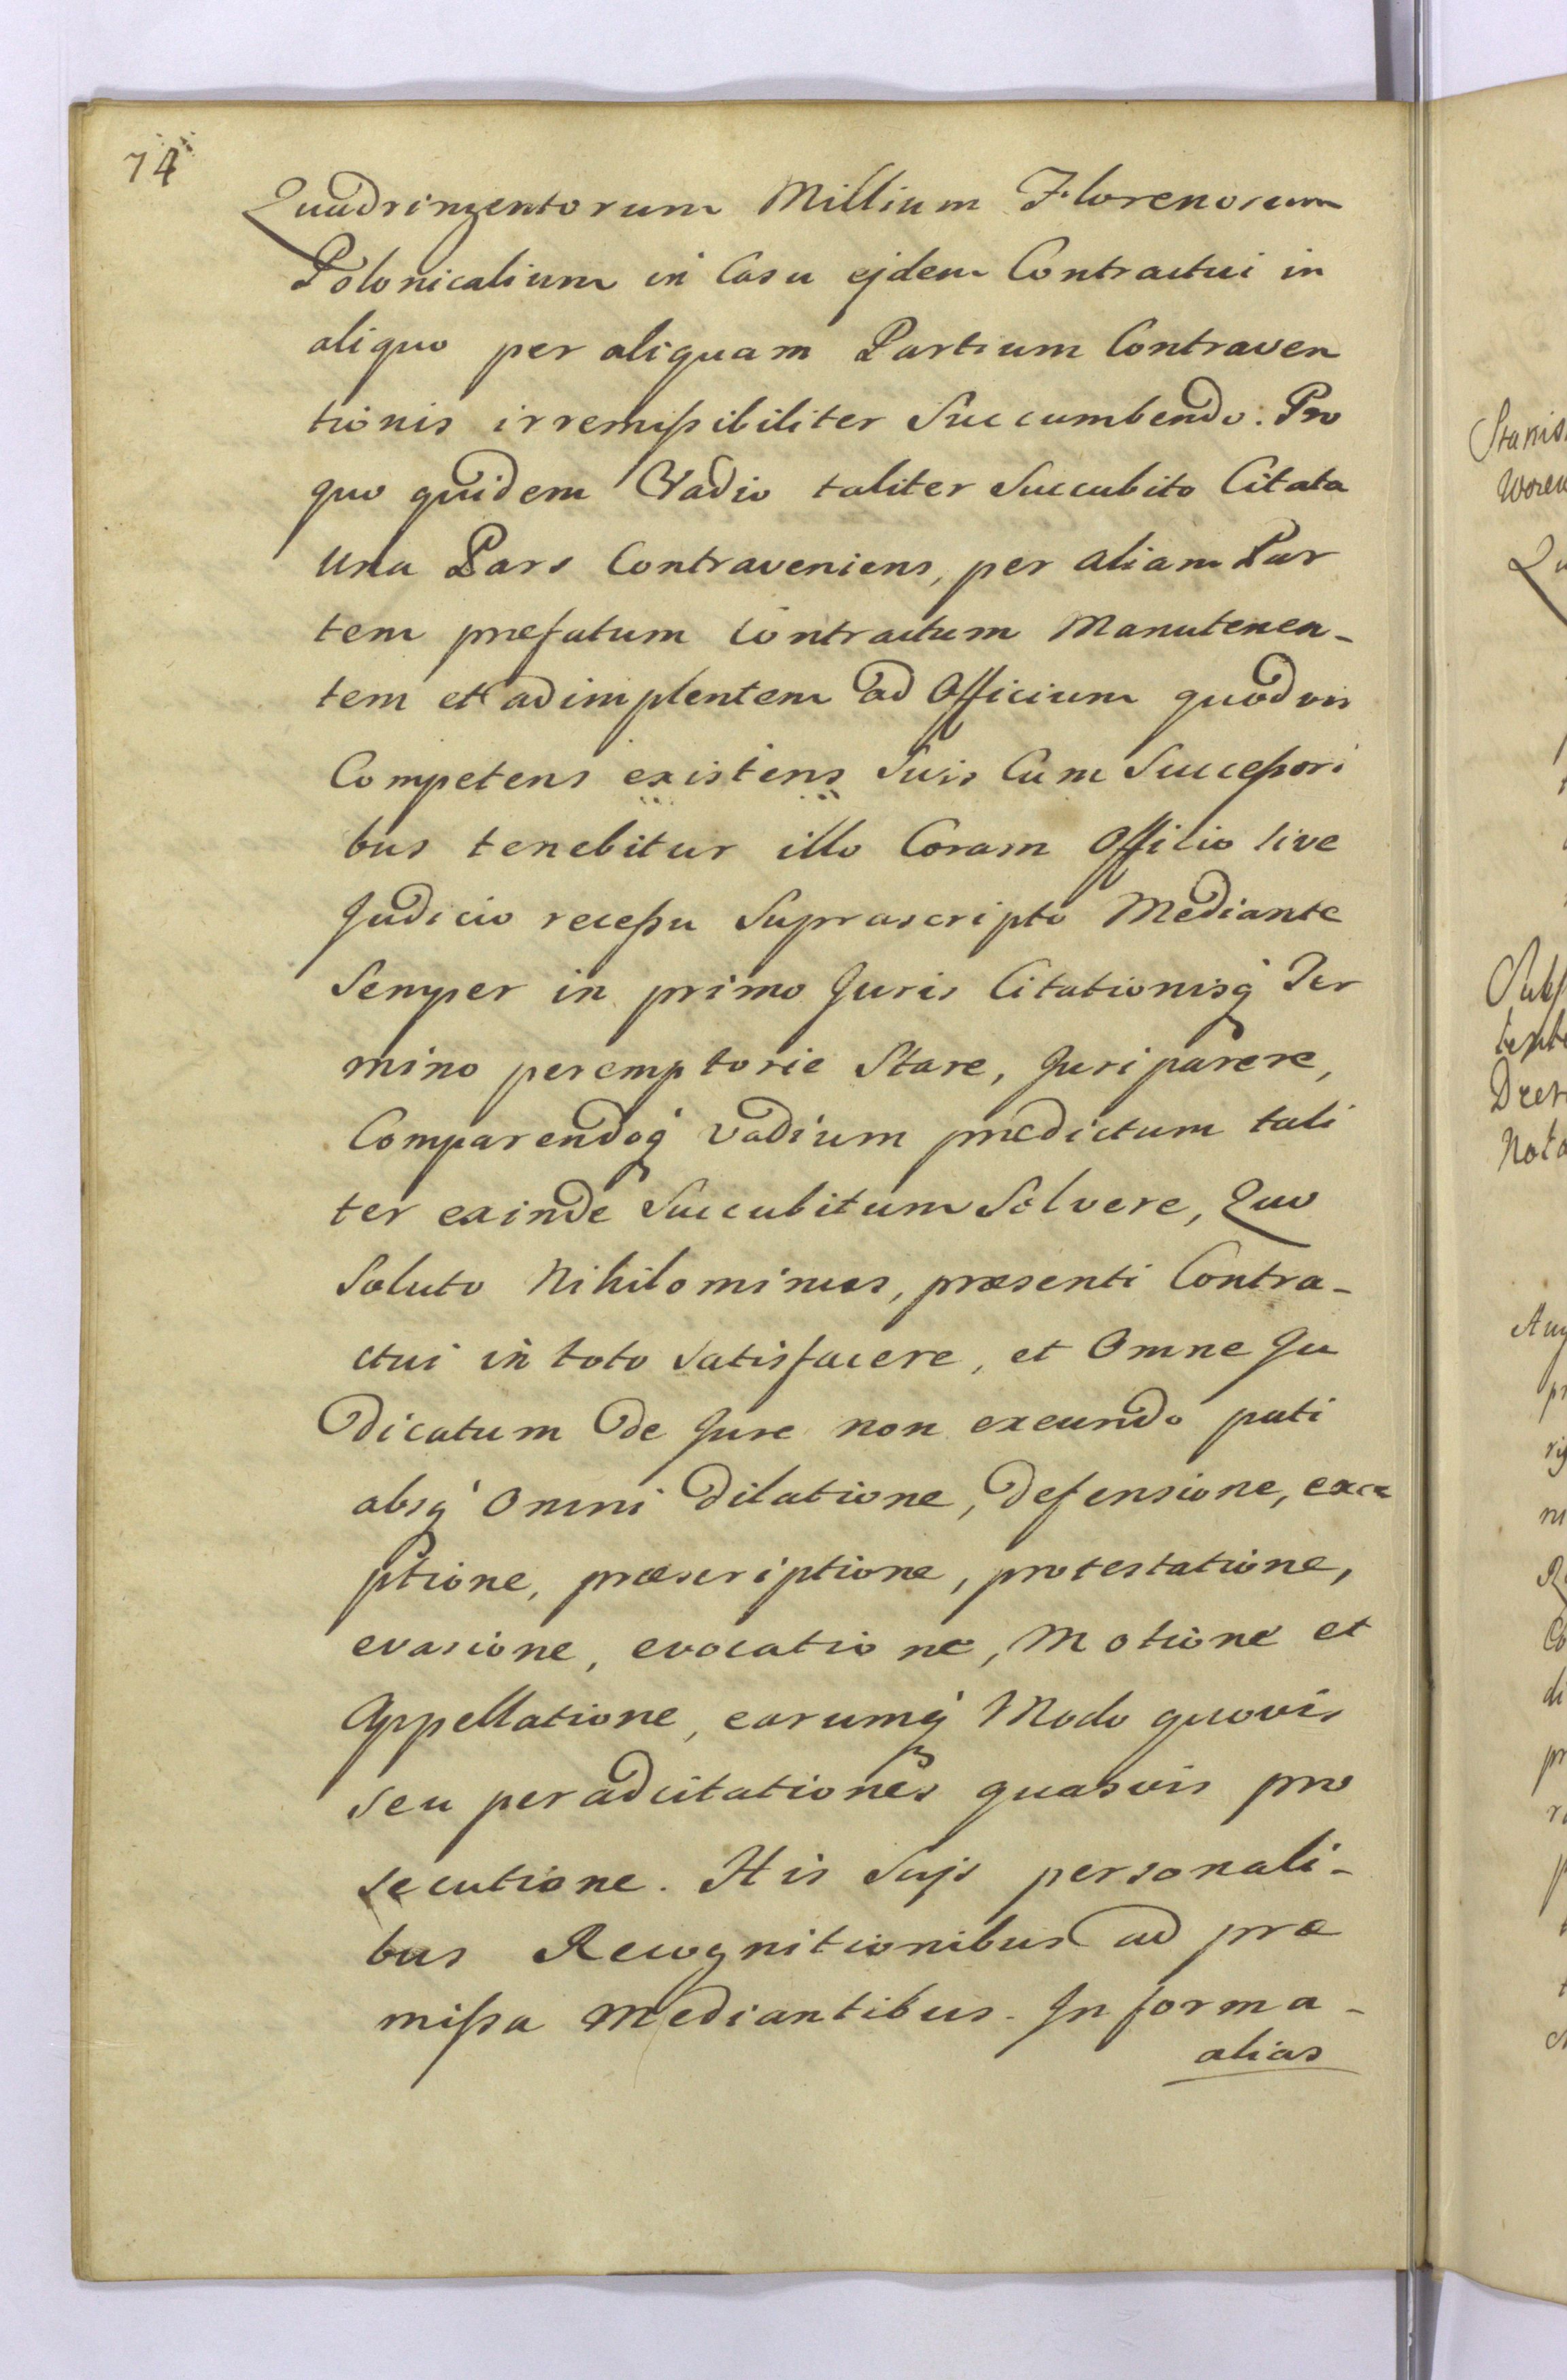 74
Quadringentorum Millium Florenorum
Polonicalium in Casu ejdem Contractui in
aliquo per aliquam Partium Contraven
tionis irremissibiliter Succumbendo. Pro
quo quidem Vadio taliter Succubito Citata
Una Pars Contraveniens, per aliam Par
tem præfatum Contractum Manutenen-
tem et adimplentem ad Officium quodvis
Competens existens Suis Cum Successori
bus tenebitur illo Coram Officio sive
Judicio recessu Suprascripto Mediante
Semper in primo Juris Citationisq Ter
mino peremptorie Stare, Juri parere,
Comparendoq Vadium prædictum tali
ter exinde Succubitum Solvere, Quo
Soluto Nihilominus, præsenti Contra-
ctui in toto satisfacere, et Omne Ju
dicatum de Jure non exeundo pati
absq Omni dilatione, defensione, exce
ptione, præscriptione, protestatione,
evasione, evocatione, Motione et
Appellatione, earumq Modo quovis
seu per adcitationes quasvis pro
secutione. His Sujs personali-
bus Recognitionibus ad præ
missa Mediantibus. In forma-
alias
Stanis
Woren
Qu
Subs
texte
Drer
Nota
Aug
pr
ni
Co
di
pr